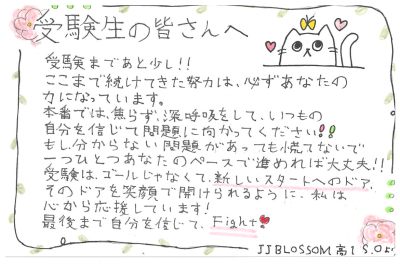 受験生の皆さんへ
受験まであと少し!!
ここまで続けてきた努力は、必ずあなたの
力になっています。
本番では、焦らず、深呼吸をして、いつもの
自分を信じて問題に向かってください!!
もし、分からない問題があっても慌てないで
一つひとつあなたのペースで進めれば大丈夫!!
受験は、ゴールじゃなくて、新しいスタートへのドア。
そのドアを笑顔で開けられるように、私は
心から応援しています!
最後まで自分を信じて、Fight!
JJBLOSSOM 高1 S.Oより